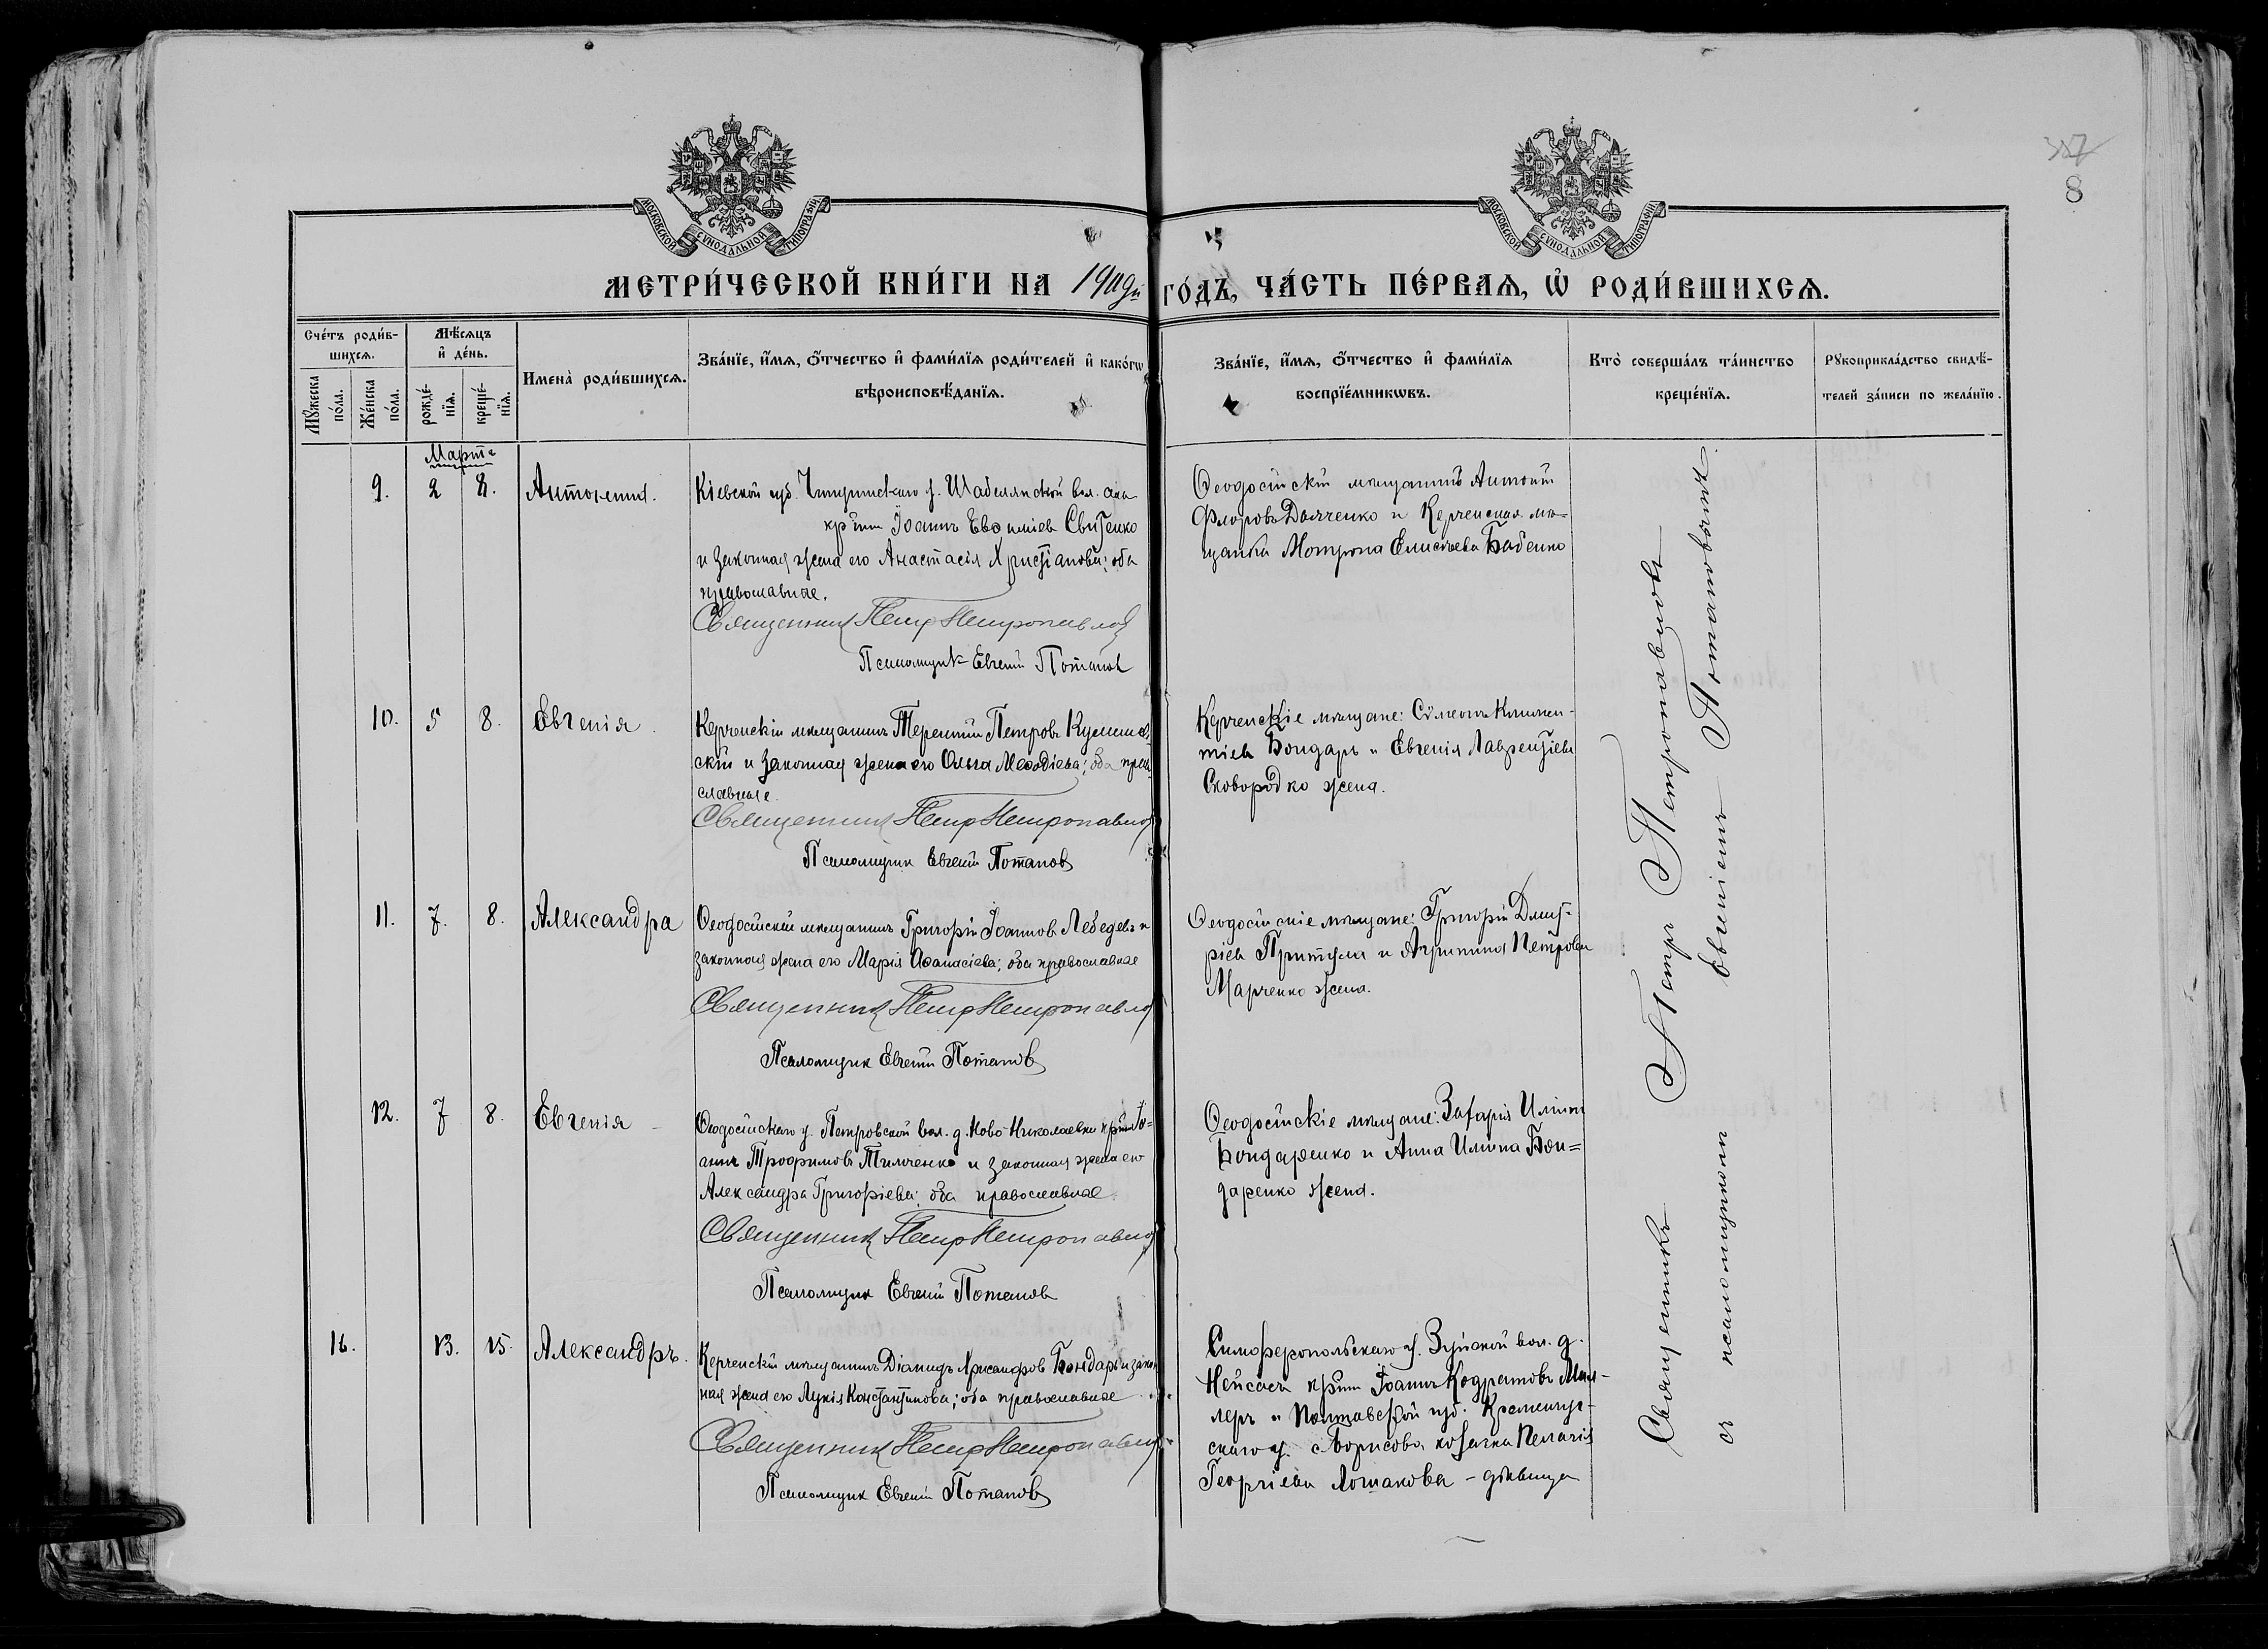 МОСКОВСКОЙ СѴНОДАЛЬНОЙ ТИПОГРАФІИ
МОСКОВСКОЙ СѴНОДАЛЬНОЙ ТИПОГРАФІИ
8
МЕТРИ́ЧЕСКОЙ КНИ́ГИ НА 1909й ГО́ДЪ, ЧА́СТЬ ПЕ́РВАѦ, Ѡ҆ РОДИ́ВШИХСѦ.
Сче́тъ роди́в-
шихсѧ.
Мꙋ́жеска
по́ла.
Же́нска
по́ла.
Мѣ́сѧцъ
и҆ де́нь.
рожде́-
нїѧ.
креще́-
нїѧ.
Имена̀ роди́вшихсѧ.
Зва́нїе, и҆́мѧ, ѻ҆́тчество и҆ фами́лїѧ роди́телей и҆ како́гѡ
вѣроисповѣ́данїѧ.
Зва́нїе, и҆́мѧ, ѻ҆́тчество и҆ фами́лїѧ
воспрїе́мникѡвъ.
Кто̀ соверша́лъ та́инство
креще́нїѧ.
Рꙋкоприкла́дство свидѣ́-
телей за́писи по жела́нїю.
Мартъ
9. 2 8. Антонина.
Кіевской губ. Чигиринскаго у. Шабелянской вол.
кр-нин Іоаннъ Евѳиміев Свитенко
и законная жена его Анастасія Христіанова; оба
православные.
Священник Петр Петропавлов
Псаломщик Евгеній Потапов
Ѳеодосійскій мѣщанинъ Антоній
Флоровъ Дьяченко и Керченская мѣ-
щанка Мотрона Елисѣева Бабенко
10. 5 8. Евгенія.
Керченскій мѣщанинъ Терентій Петровъ
скій и законная жена его Ольга Меѳодіева; оба прав
славные.
Священник Петр Петропавлов
Псаломщик Евгеній Потапов
Керченскіе мѣщане: Сѵмеонъ Климен-
тіев Бондарь и Евгенія Лаврентіева
Сковородко жена.
11. 7. 8. Александра
Ѳеодосійскій мѣщанинъ Григорій Іоаннов Лебедевъ и
законная жена его Марія Аѳанасіева; оба православные
Священник Петр Петропавлов
Псаломщик Евгеній Потапов
Ѳеодосійскіе мѣщане: Григорій Димит-
ріев Притула и Агрипина Петрова
Марченко жена.
12. 7 8. Евгенія
Ѳеодосійскаго у. Петровской вол. д. Ново-Николаевки кр-нин Іо-
аннъ Трофимовъ Тимченко и законная жена его
Александра Григоріева; оба православные.
Священник Петр Петропавлов
Псаломщик Евгеній Потапов
Ѳеодосійскіе мѣщане: Захарія Иліинъ
Бондаренко и Анна Иліина Бон=
даренко жена.
16. 13. 15. Александръ.
Керченскій мѣщанинъ Діамидъ Бондарь и закон
ная жена его Лукія Константинова; оба православные
Священник Петр Петропавлов
Псаломщик Евгеній Потапов
Симферопольскаго у. Зуйской вол. д.
Нейсацъ кр-нин Іоаннъ Кодратовъ Мил-
леръ и Полтавской губ. Кременчуг-
скаго у. козачка Пелагія
Георгіева Лошакова – дѣвица
Священникъ Петръ Петропавловъ
съ псаломщикомъ Евгеніемъ Потаповымъ.